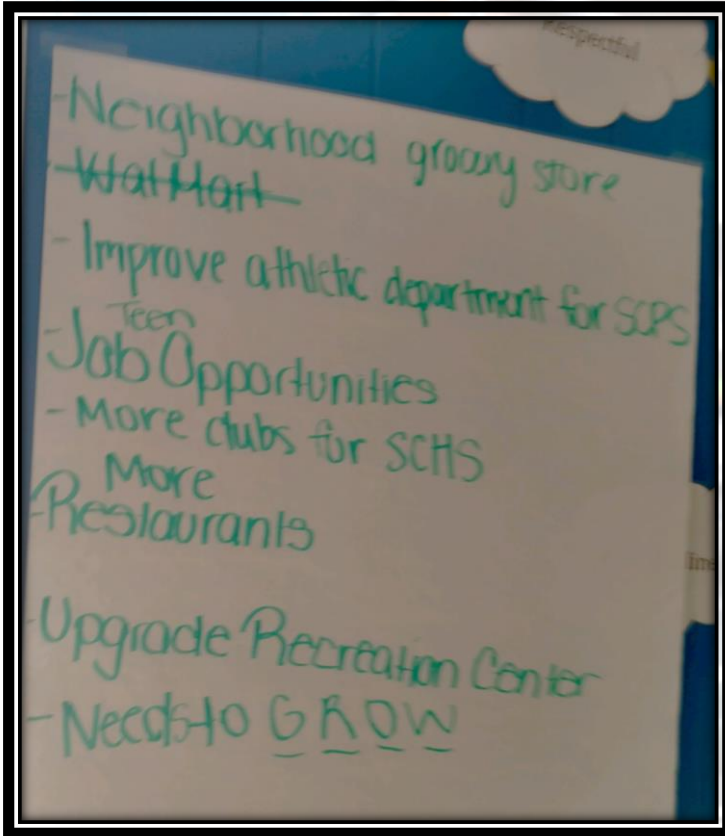 Respectful
-Neighborhood grocery store
-WalMart
- Improve athletic department for SCPS
Teen
-Job Opportunities
- More clubs for SCHS
More
-Restaurants
-Upgrade Recreation Center
-Needs to GROW